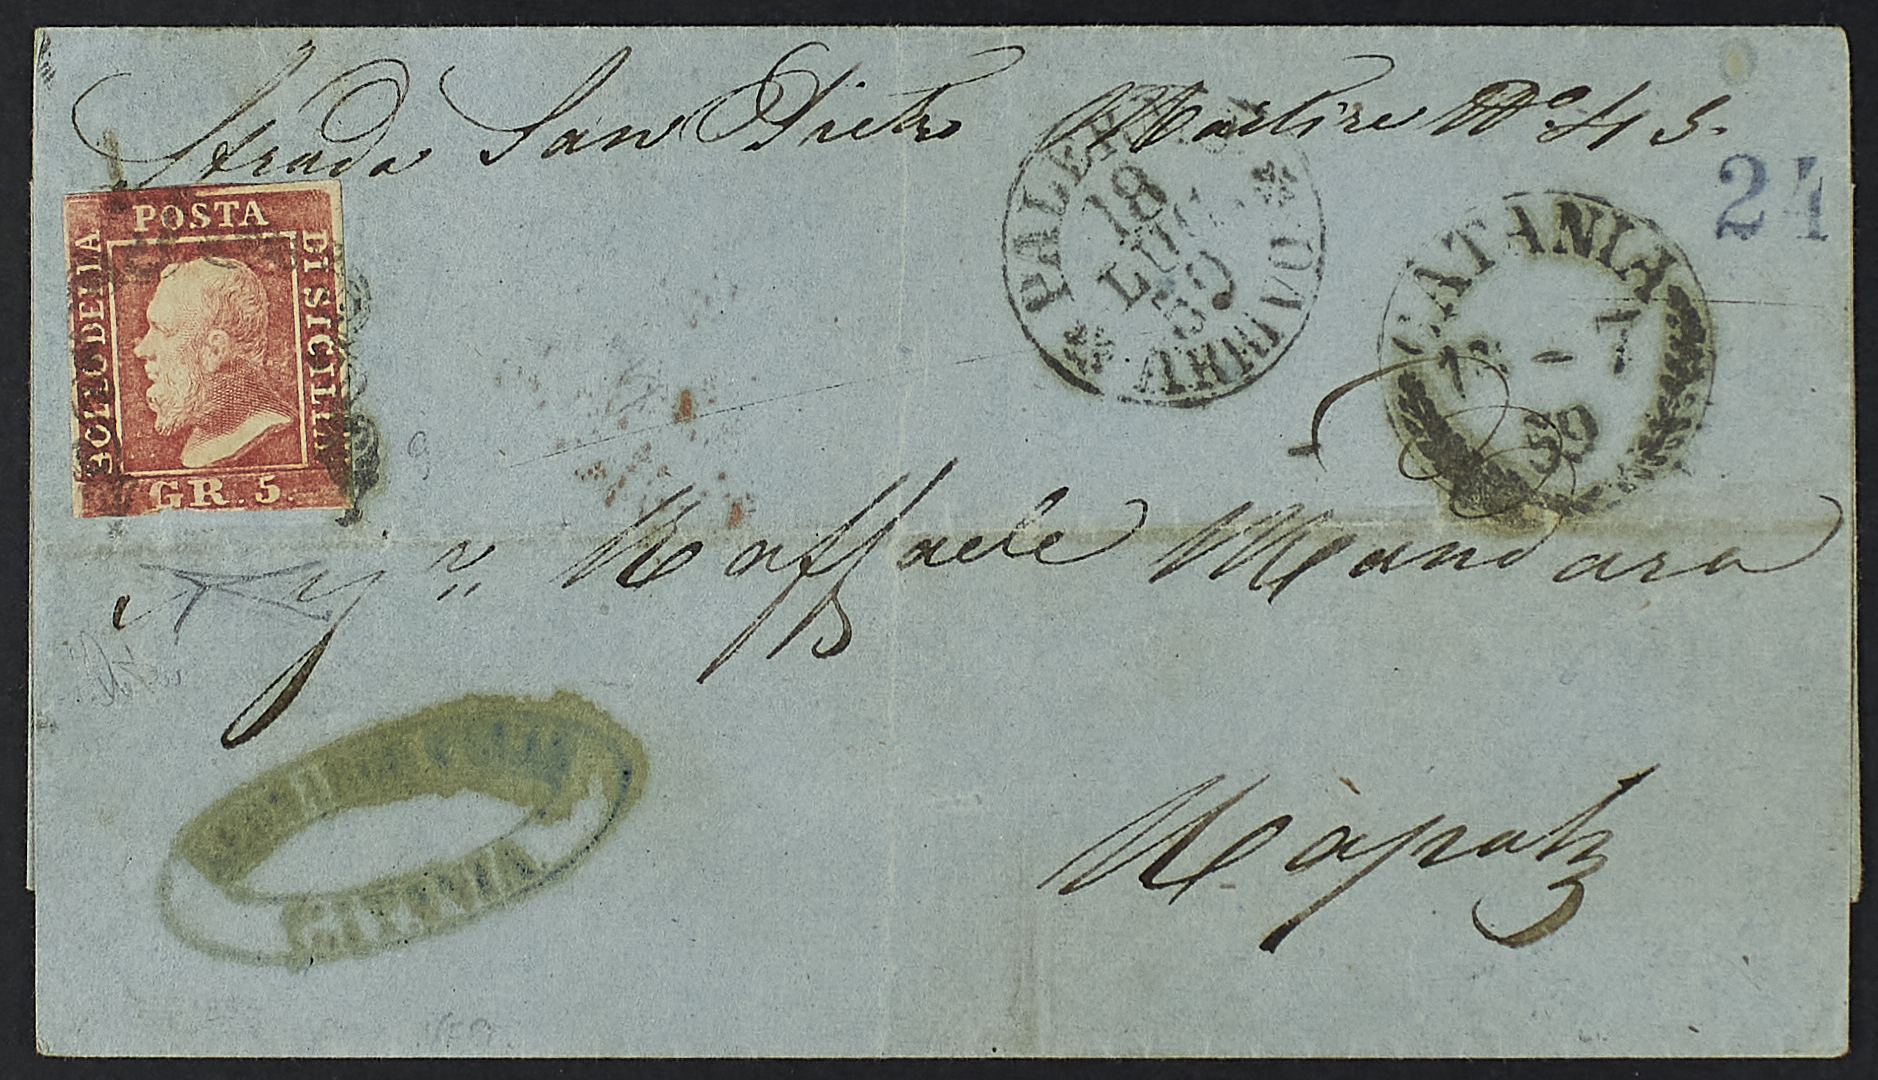 Strada San Pietro Martire No. 43.
24
POSTA
BOLLO DELLA
DI SICILIA
GR. 5.
PALERMO
18
LUG.
59
ARRIVO
CATANIA
59
Sigr. Raffaele Mandara
CATANIA
Napoli